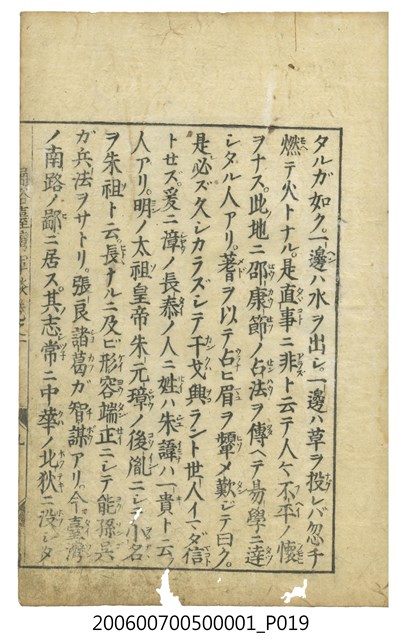 タルガ如ク。一邊ハ水ヲ出シ。一邊ハ草ヲ投レバ忽チ
燃テ火トナル。是直事ニ非ト云テ人々不平ノ懷
ヲナス。此地ニ邵康節ノ占法ヲ傳ヘテ易學ニ達
シタル人アリ。蓍ヲ以テ占ヒ眉ヲ顰メ歎ジテ曰ク。
是必ズ久シカラズシテ干戈興ラント世人イマダ信
トセズ爰ニ漳ノ長泰ノ人ニ姓ハ朱諱ハ一貴ト云フ
人アリ。明ノ太祖皇帝朱元璋ノ後胤ニシテ小名
ヲ朱祖ト云。長ナルニ及ビ形容端正ニシテ能孫吳
ガ兵法ヲサトリ。張良諸葛ガ智謀アリ。今臺灣
ノ南路ノ鄙ニ居ス。其志常ニ中華ノ北狄ニ沒シタ
200600700500001_P019